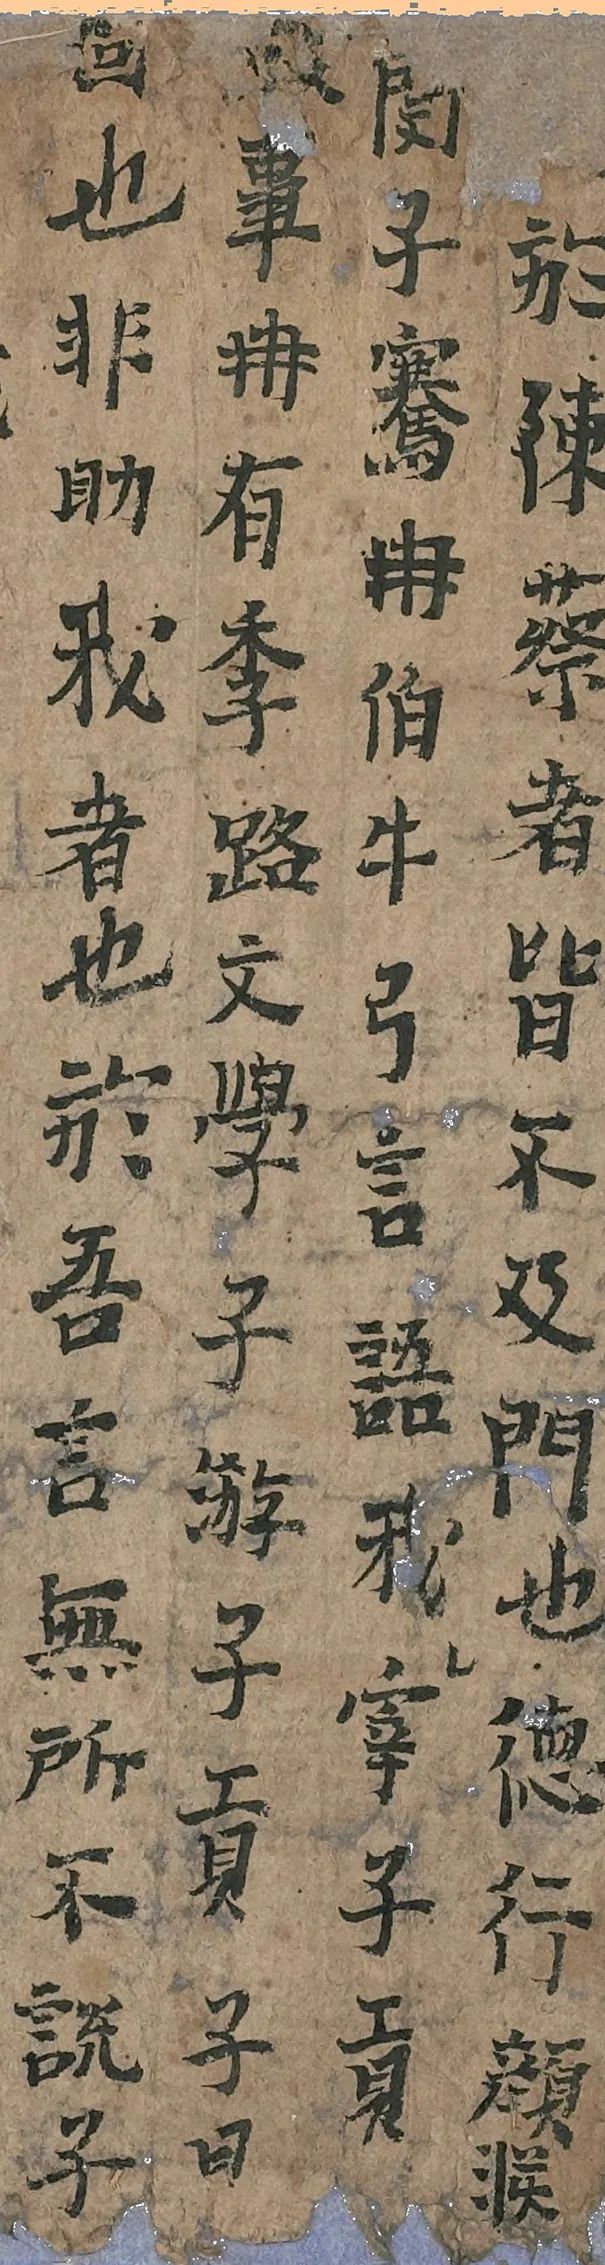 於陳蔡者皆不及門也德行顏渕
閔子騫冉伯牛弓言語我宰子貢
政事冉有季路文學子游子貢子曰
回也非助我者也於吾言無所不說子